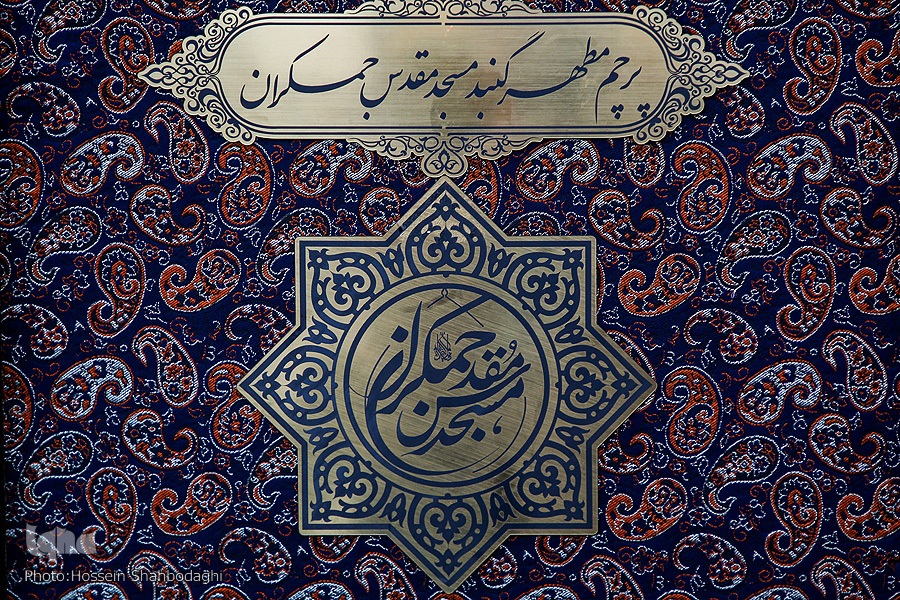 پرچم مطهر گنبد مسجد مقدس جمکران
مسجد مقدس جمکران
iqna
Photo:Hossein Shahbodaghi